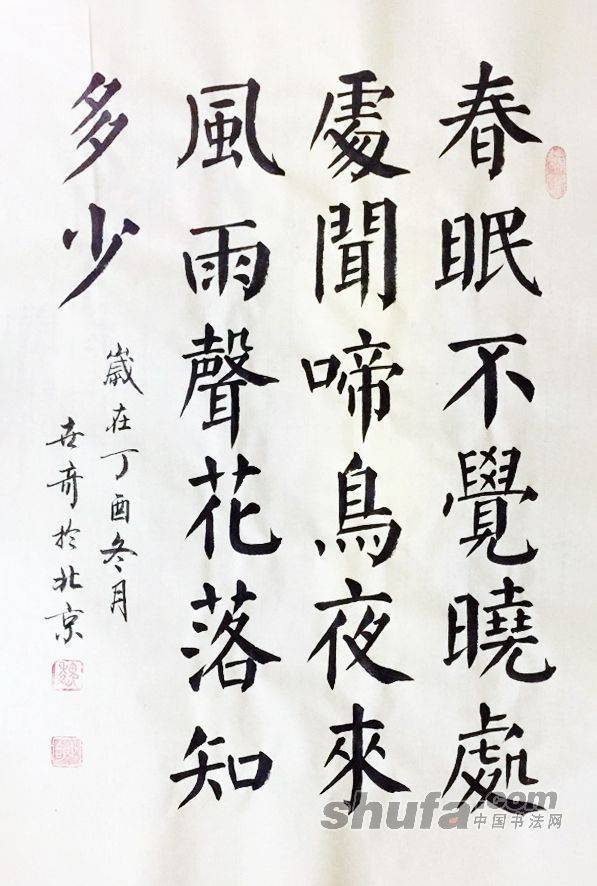 春眠不覺曉處
處聞啼鳥夜來
風雨聲花落知
多少
歲在丁酉冬月
世奇於北京
shufa.com
中国书法网